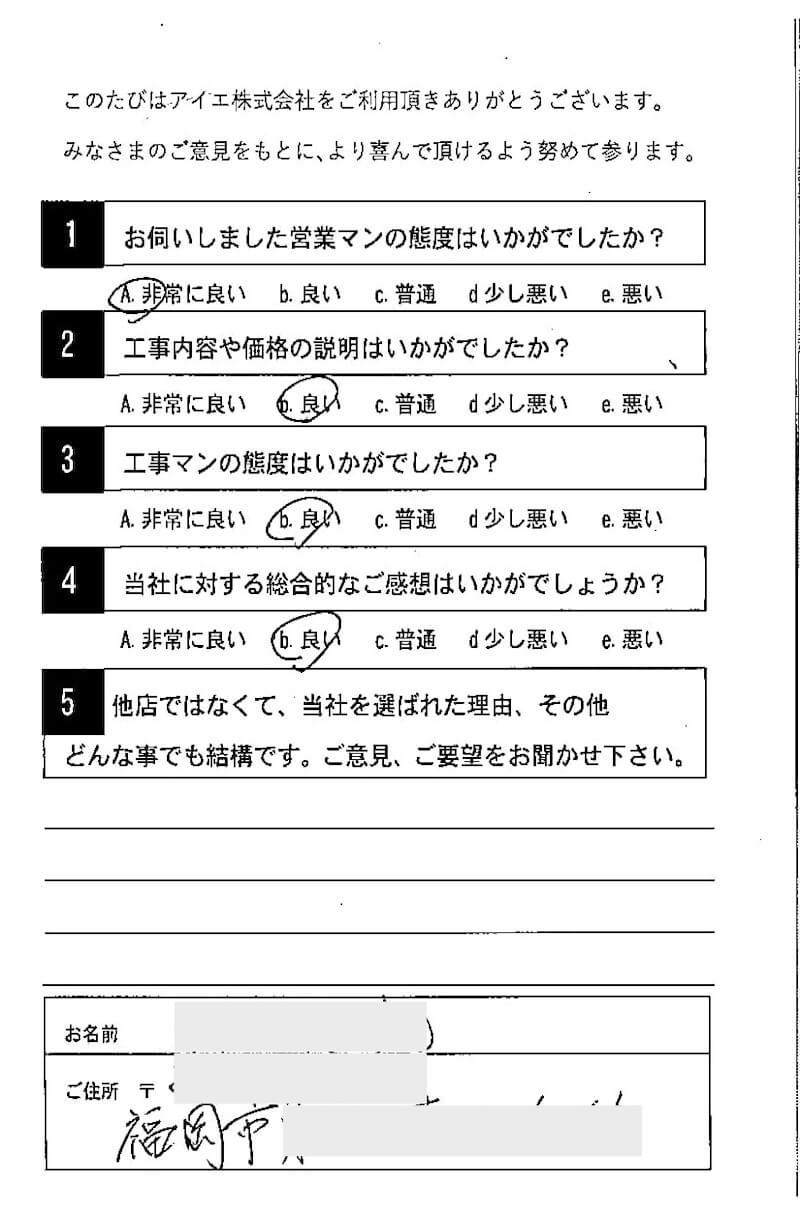 このたびはアイエ株式会社をご利用頂きありがとうございます。
みなさまのご意見をもとに、より喜んで頂けるよう努めて参ります。
1 お伺いしました営業マンの態度はいかがでしたか？
A. 非常に良い b. 良い c. 普通 d 少し悪い e. 悪い
2 工事内容や価格の説明はいかがでしたか？
A. 非常に良い b. 良い c. 普通 d 少し悪い e. 悪い
3 工事マンの態度はいかがでしたか？
A. 非常に良い b. 良い c. 普通 d 少し悪い e. 悪い
4 当社に対する総合的なご感想はいかがでしょうか？
A. 非常に良い b. 良い c. 普通 d 少し悪い e. 悪い
5 他店ではなくて、当社を選ばれた理由、その他
どんな事でも結構です。ご意見、ご要望をお聞かせ下さい。
お名前
ご住所 〒
福岡市